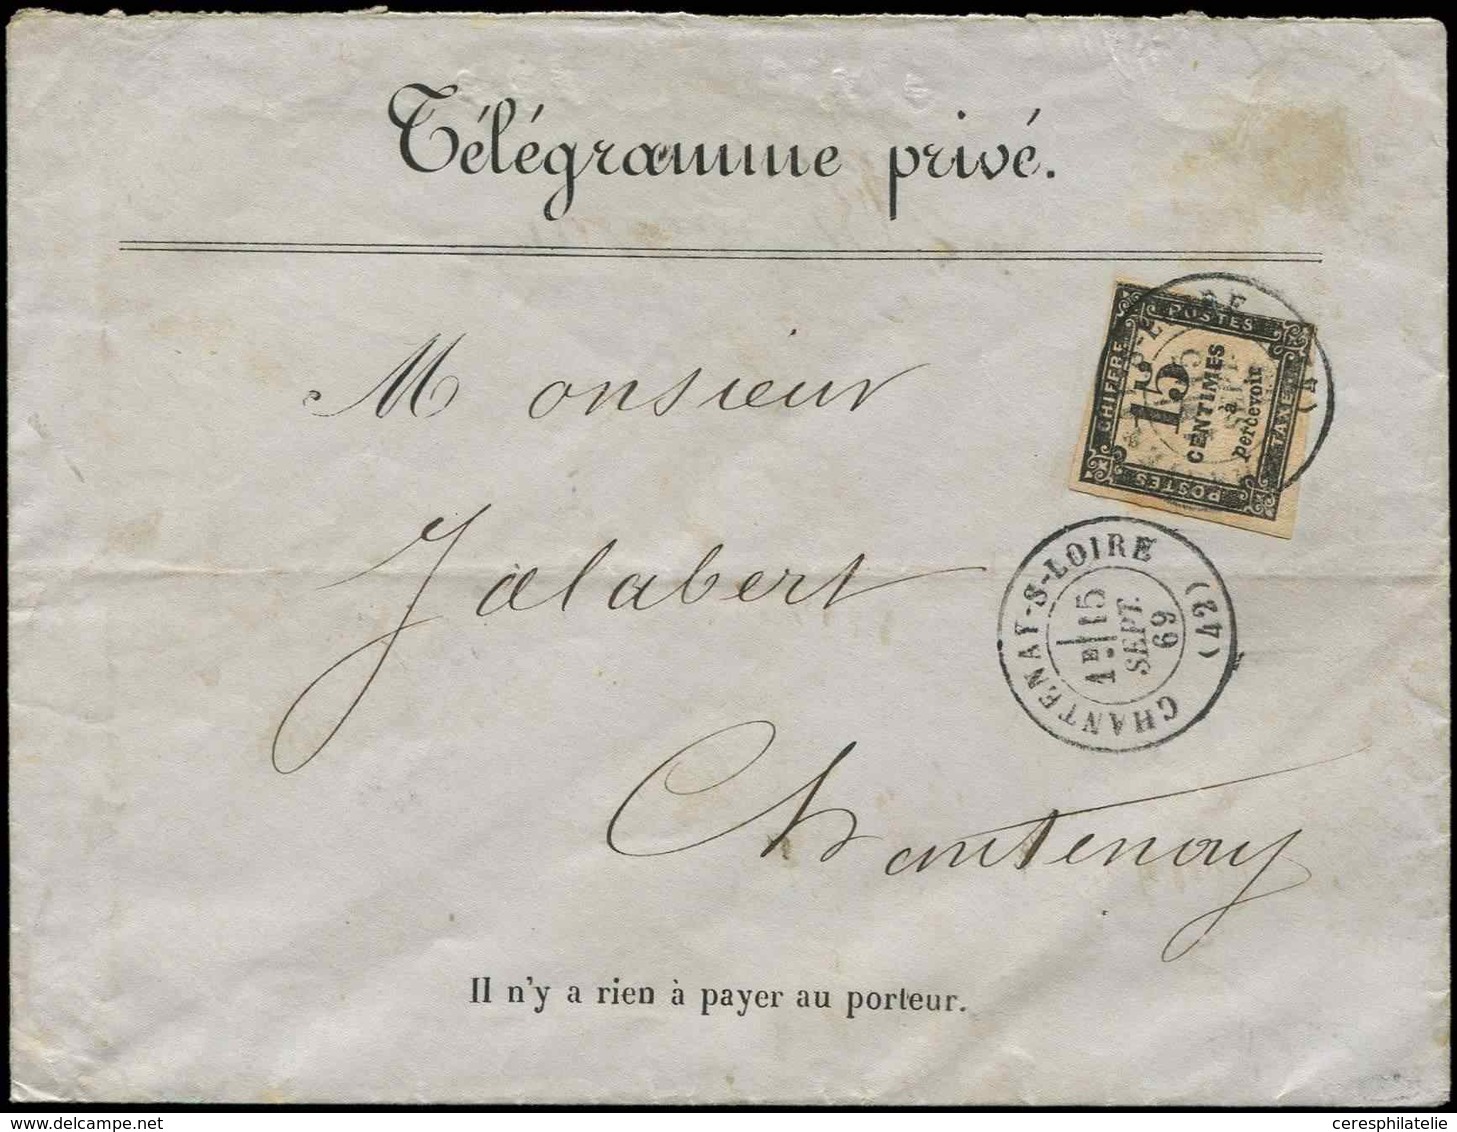 Télégramme privé.
POSTES
CHIFFRE
15
CENTIMES
à
percevoir
TAXE
POSTES
Monsieur
Jalabert
CHANTENAY-S-LOIRE (42)
1E 15
SEPT.
69
Chantenay
Il n'y a rien à payer au porteur.
ceresphilatelie